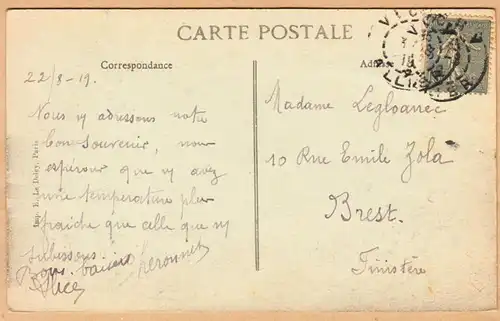 CARTE POSTALE
Correspondance
22/8-19.
Nous vs adressons notre
bon souvenir, nous
espérons que vs avez
une température plus
fraîche que celle que ns
subissons.
Bons baisers
Alice
Imp. E. Le Deley, Paris
Madame Legloanec
10 Rue Emile Zola
Brest.
Finistère
VICHY
ALLIER